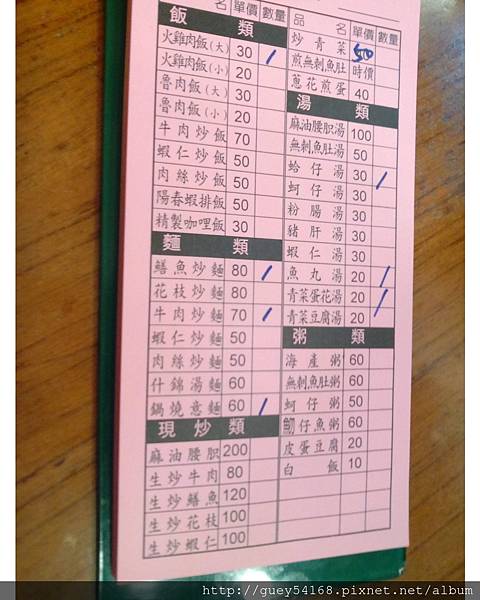 名 單價 數量
飯 類
火雞肉飯(大) 30
火雞肉飯(小) 20
魯肉飯(大) 30
魯肉飯(小) 20
牛肉炒飯 70
蝦仁炒飯 50
肉絲炒飯 50
陽春蝦排飯 50
精製咖哩飯 30
麵 類
鱔魚炒麵 80
花枝炒麵 80
牛肉炒麵 70
蝦仁炒麵 50
肉絲炒麵 50
什錦湯麵 60
鍋燒意麵 60
現炒類
麻油腰胘 200
生炒牛肉 80
生炒鱔魚 120
生炒花枝 100
生炒蝦仁 100
品 名 單價 數量
炒青菜
煎無刺魚肚 時價
蔥花煎蛋 40
湯 類
麻油腰胘湯 100
無刺魚肚湯 50
蛤仔湯 30
蚵仔湯 30
粉腸湯 30
豬肝湯 30
蝦仁湯 30
魚丸湯 20
青菜蛋花湯 20
青菜豆腐湯 20
粥 類
海產粥 60
無刺魚肚粥 60
蚵仔粥 50
魩仔魚粥 60
皮蛋豆腐 20
白飯 10
http://guey54168.pixnet.net/album